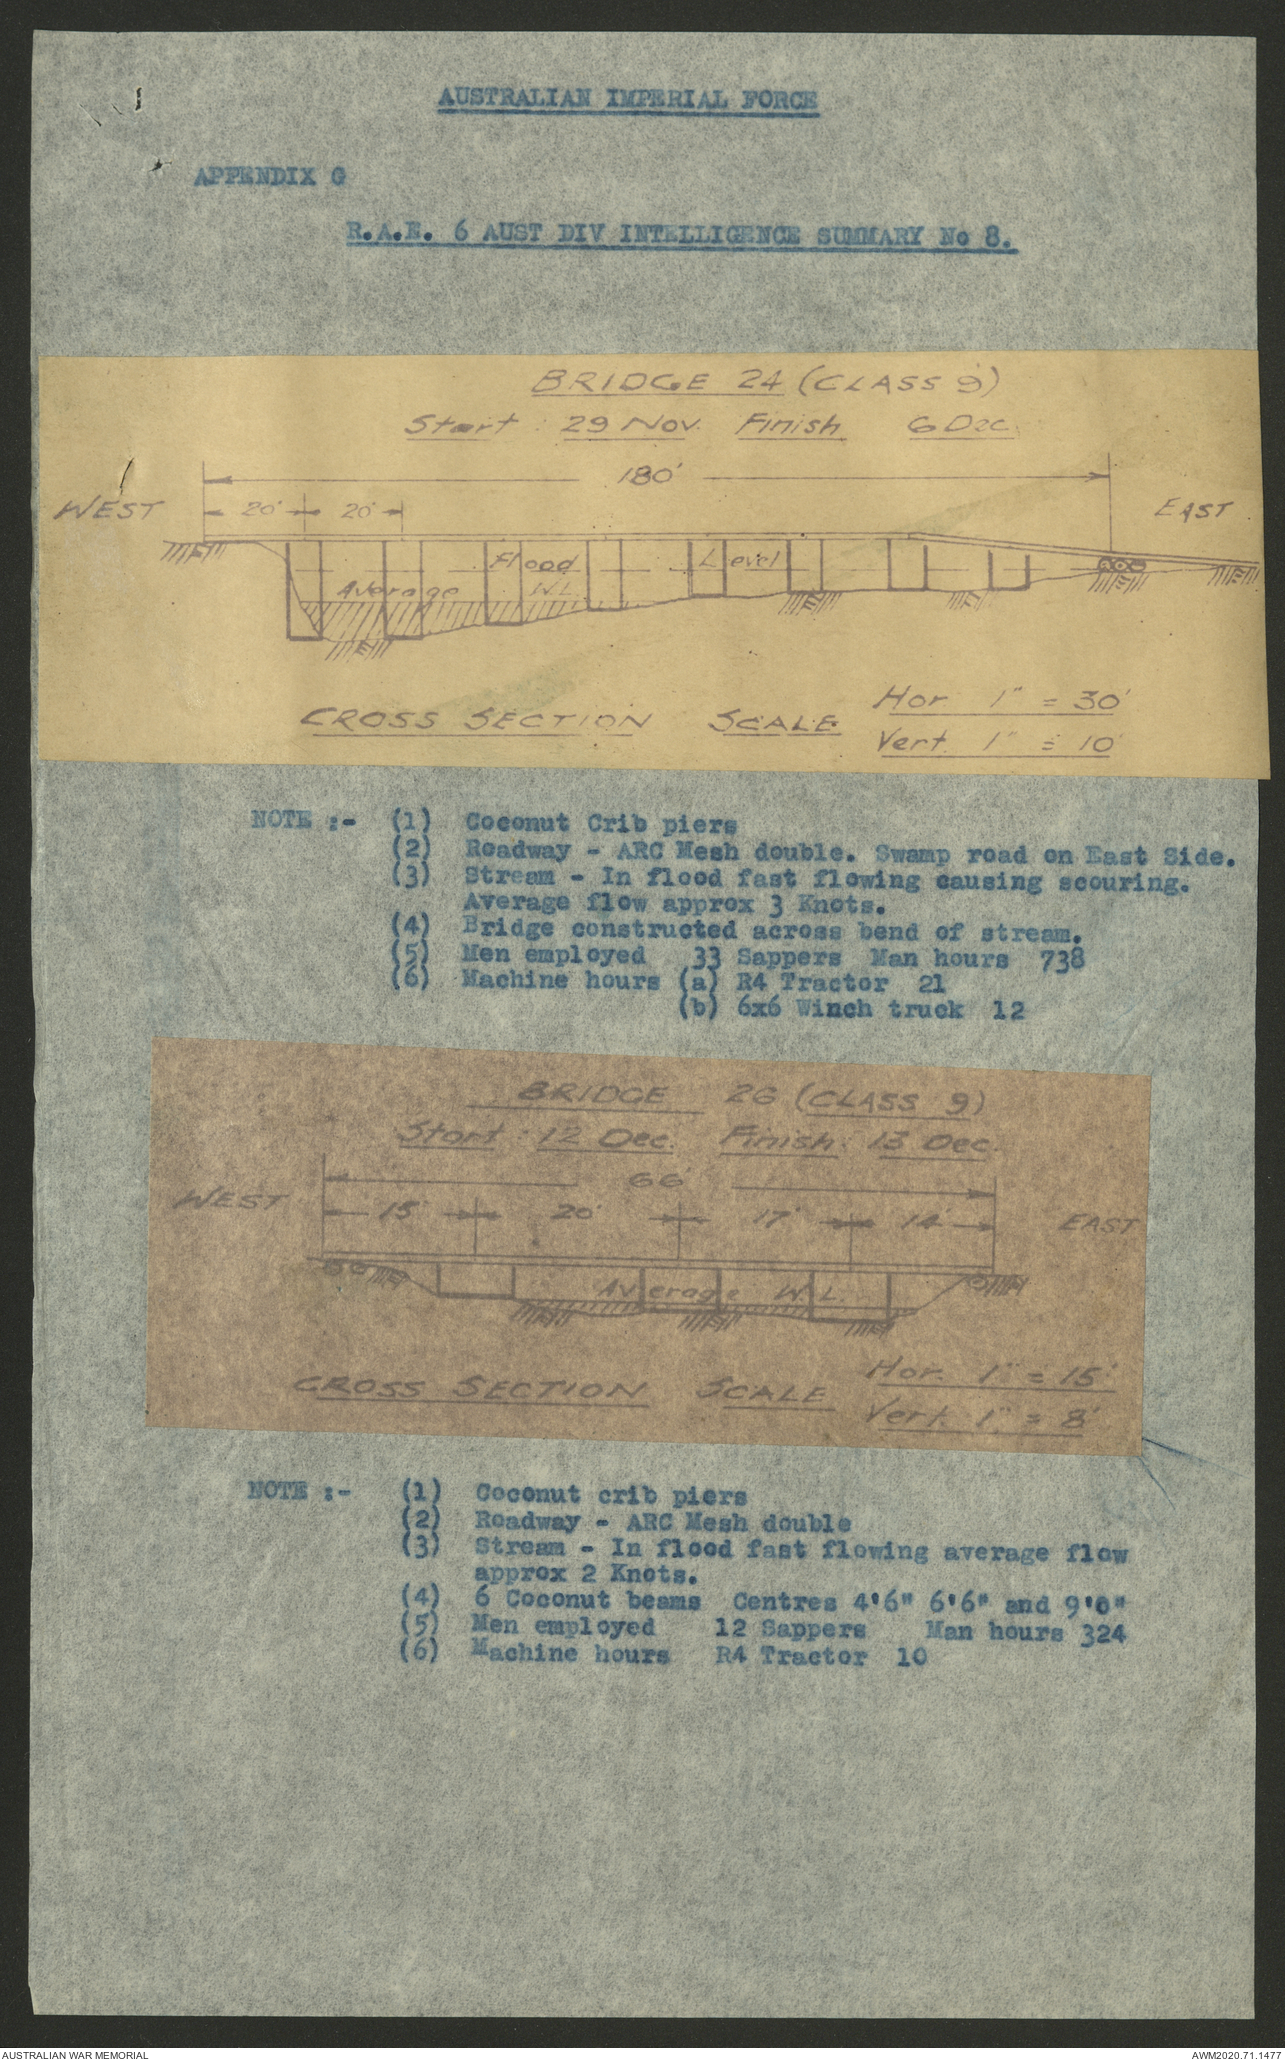 AUSTRALIAN IMPERIAL FORCE
APPENDIX G
R.A.E. 6 AUST DIV INTELLIGENCE SUMMARY No 8.
BRIDGE 24 (CLASS 9)
Start : 29 Nov. Finish 6 Dec.
180'
WEST 20' 20' EAST
Flood Level
Average W.L.
CROSS SECTION SCALE Hor 1" = 30'
Vert. 1" = 10'
NOTE :- (1) Coconut Crib piers
(2) Roadway - ARC Mesh double. Swamp road on East Side.
(3) Stream - In flood fast flowing causing scouring.
Average flow approx 3 Knots.
(4) Bridge constructed across bend of stream.
(5) Men employed 33 Sappers Man hours 738
(6) Machine hours (a) R4 Tractor 21
(b) 6x6 Winch truck 12
BRIDGE 26 (CLASS 9)
Start : 12 Dec. Finish : 13 Dec.
66'
WEST 15' 20' 17' 14' EAST
Average W.L.
CROSS SECTION SCALE Hor. 1" = 15'
Vert. 1" = 8'
NOTE :- (1) Coconut crib piers
(2) Roadway - ARC Mesh double
(3) Stream - In flood fast flowing average flow
approx 2 Knots.
(4) 6 Coconut beams Centres 4'6" 6'6" and 9'0"
(5) Men employed 12 Sappers Man hours 324
(6) Machine hours R4 Tractor 10
AUSTRALIAN WAR MEMORIAL AWM2020.71.1477